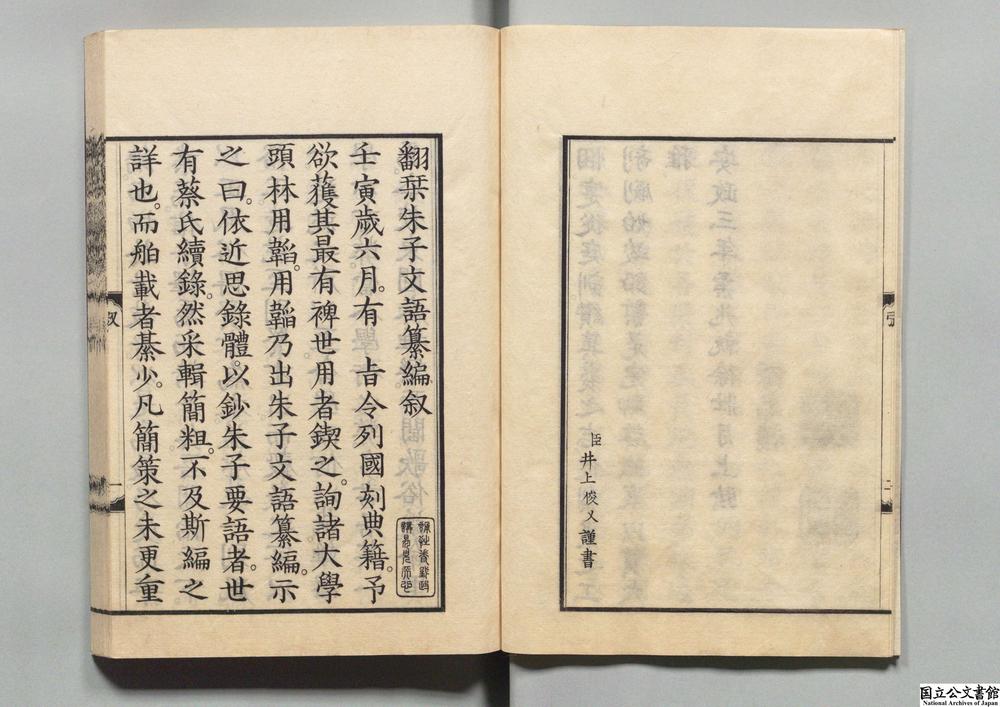 臣井上俊乂謹書
引
二
翻栞朱子文語纂編叙
壬寅歳六月。有 旨令列國刻典籍。予
欲蒦其最有裨世用者鍥之。詢諸大學
頭林用韜。用韜乃出朱子文語纂編。示
之曰。依近思錄體。以鈔朱子要語者。世
有蔡氏續錄。然采輯簡粗。不及斯編之
詳也。而舶載者綦少。凡簡策之未更重
叙
一
国立公文書館
National Archives of Japan